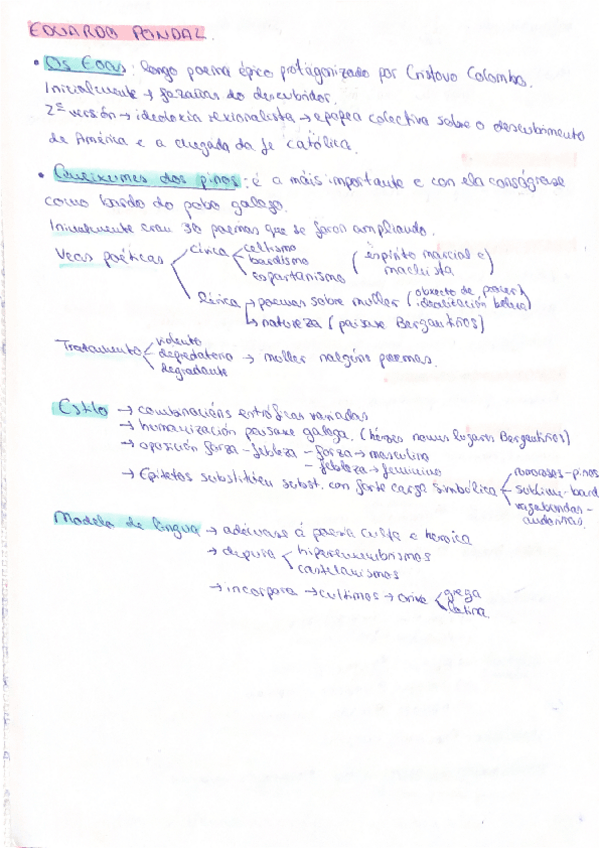 EDUARDO PONDAL.
• Os Eoas: longo poema épico protagonizado por Cristovo Colombo.
Inicialmente → fazañas do descubridor.
2ª versión → ideoloxía rexionalista → epopea colectiva sobre o descubrimento
de América e a chegada da fe católica.
• Queixumes dos pinos: é a máis importante e con ela conságrase
como bardo do pobo galego.
Inicialmente eran 30 poemas que se foron ampliando.
Voces poéticas
cívica
celtismo
bardismo
espartanismo
(espírito marcial e machista)
lírica → poemas sobre muller (obxecto de pracer)
idealización beleza
↳ natureza (paisaxe Bergantiños)
Tratamento
violento
depredatorio → muller nalgúns poemas.
degradante
Estilo → combinacións estróficas variadas
→ humanización paisaxe galega. (héroes nomes lugares Bergantiños)
→ oposición forza - febleza - forza → masculino
- febleza → feminino
→ Epítetos substitúen subst. con forte carga simbólica
rumorosos - pinos
sublime - bardo
vagabundas -
anduriñas.
Modelo de lingua → adécuase á poesía culta e heroica
→ depura
hiperenxebrismos
castelanismos
→ incorpora → cultismos → orixe
grega
latina.